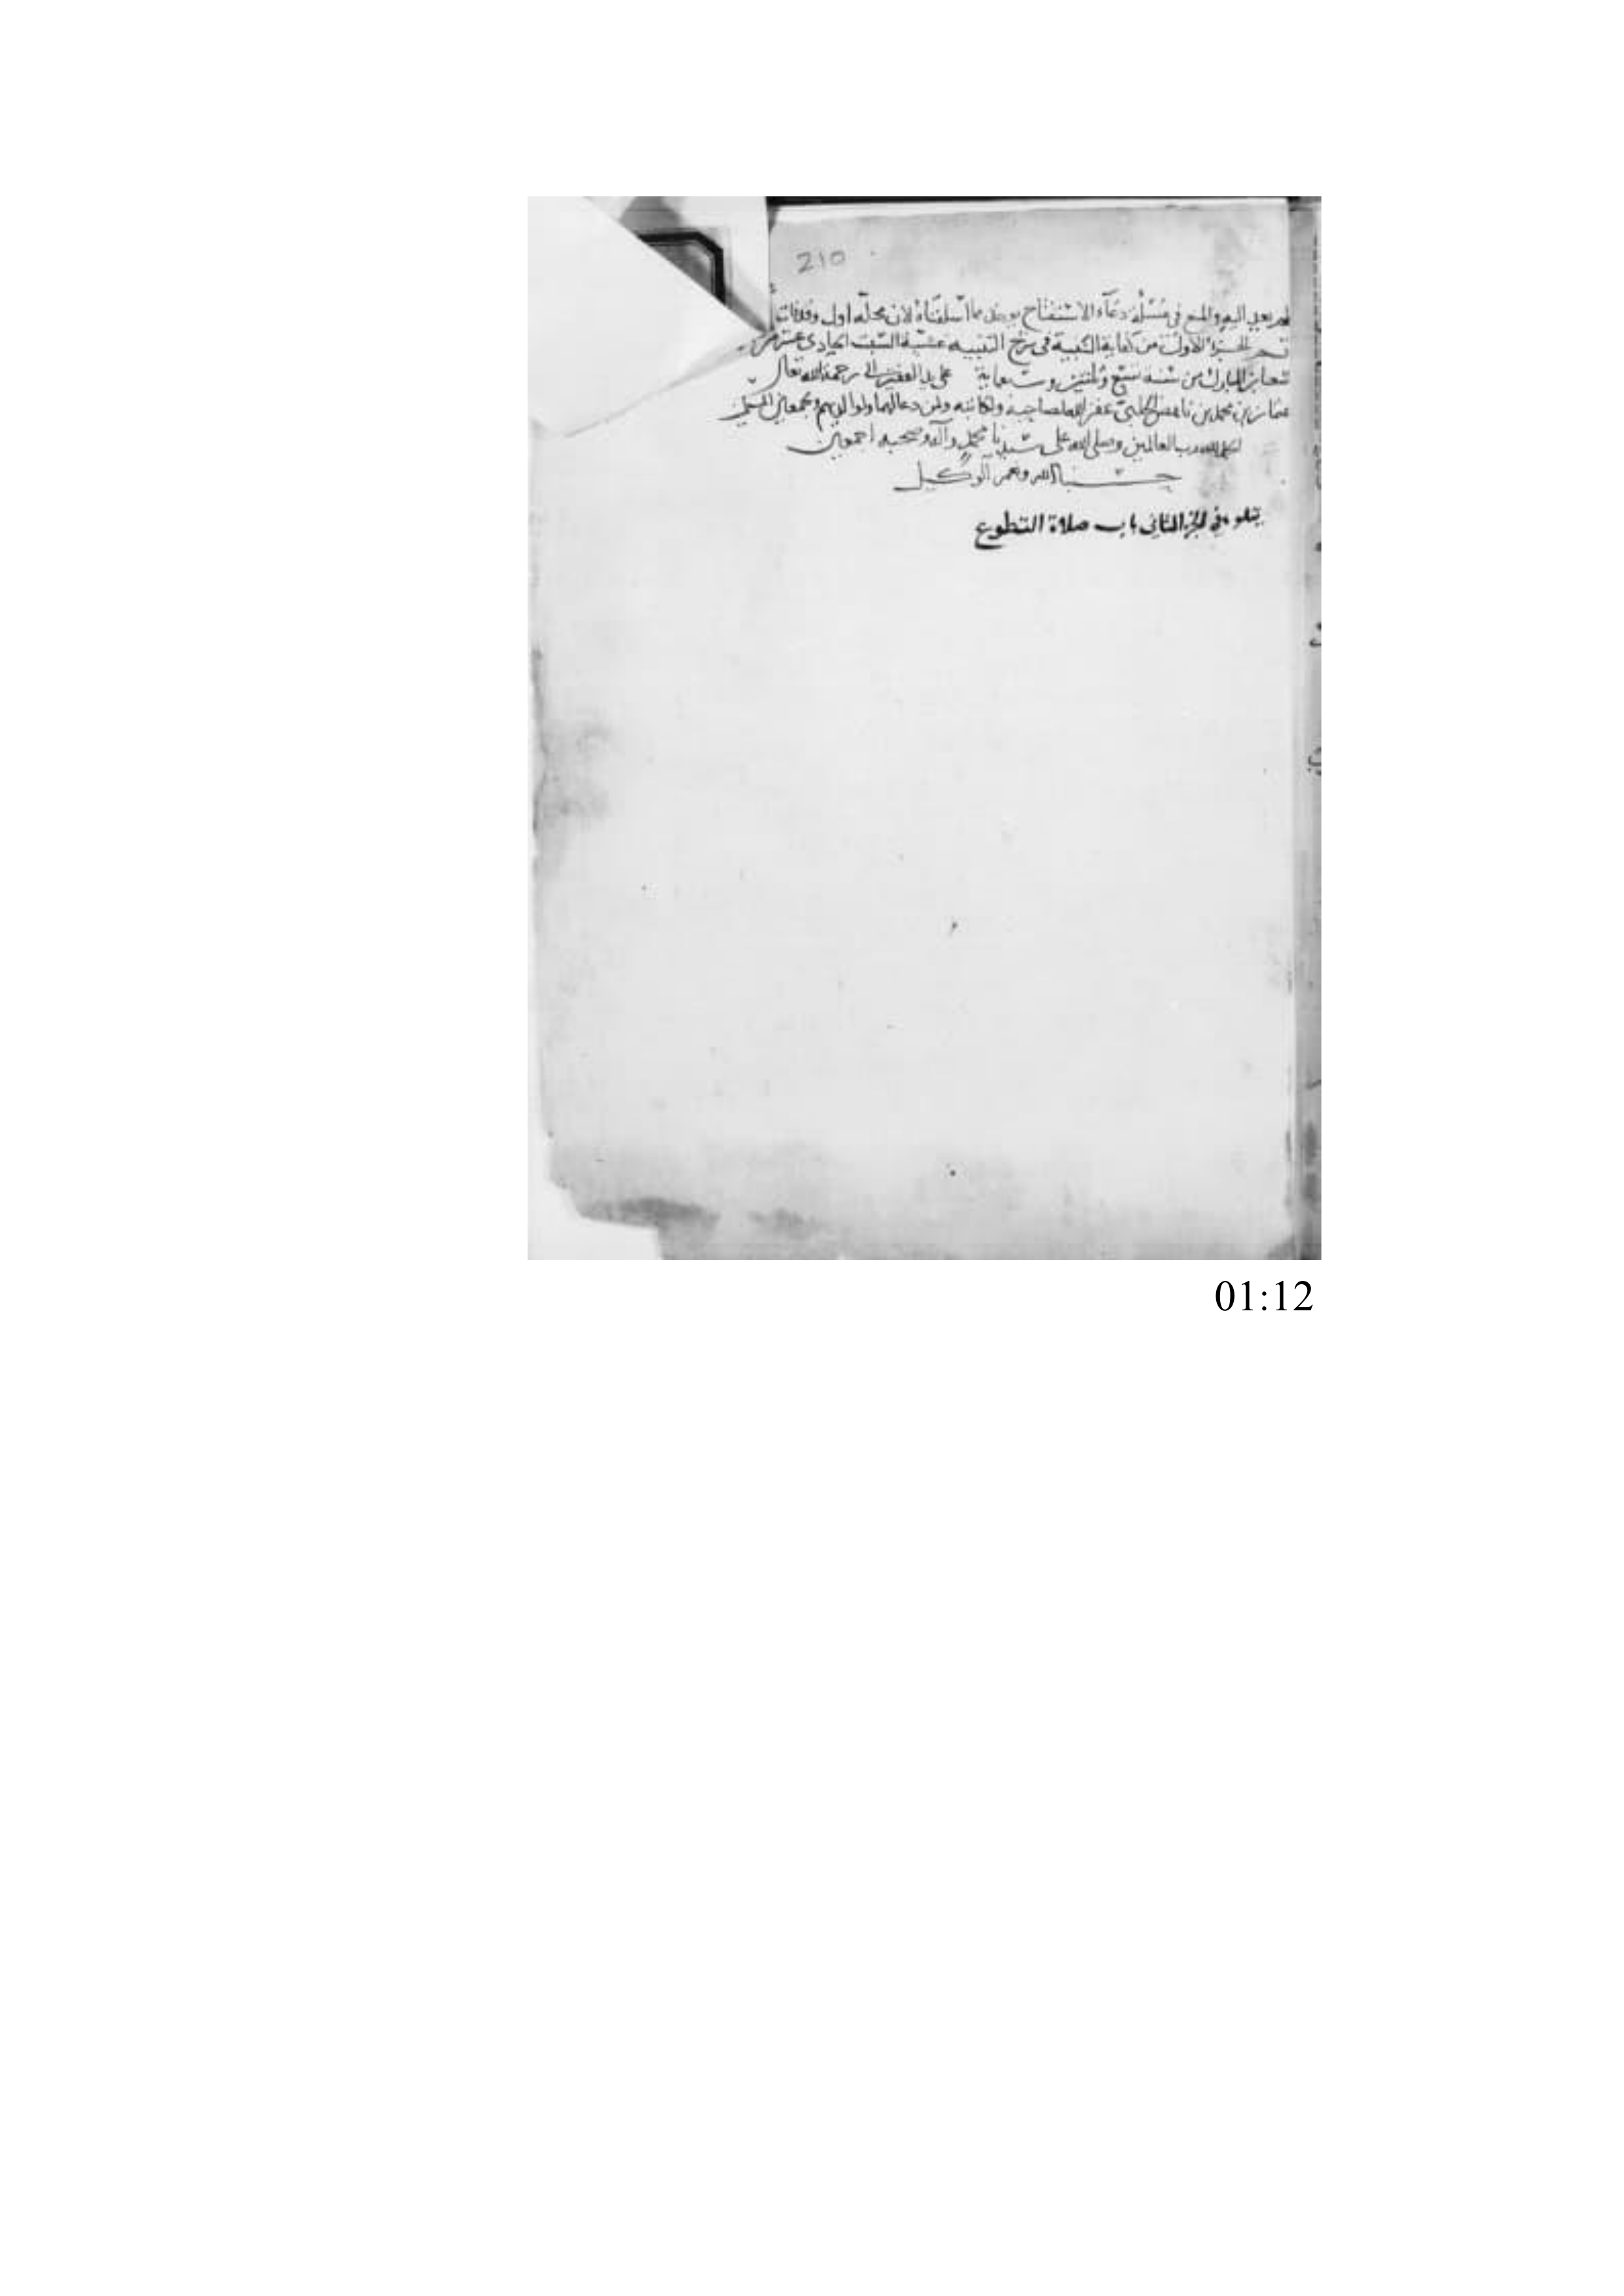 210
لم يعد اليه والمنع في مسئلة دعاء الاستفتاح يوخذ مما اسلفناه لان محله اول وقد فات
تم الجزء الاول من كفاية النبيه في شرح التنبيه عشية السبت الحادي عشر من
شعبان المبارك من سنة سبع وثلثين وسبعماية على يد العبد الفقير الى رحمة الله تعالى
عثمان بن محمد بن الحلبي غفر الله لصاحبه ولكاتبه ولمن دعا لهما ولوالديهم ولجميع المسلمين
الحمد لله رب العالمين وصلى الله على سيدنا محمد وآله وصحبه اجمعين
حسبنا الله ونعم الوكيل
يتلوه في الجزء الثاني باب صلاة التطوع
01:12